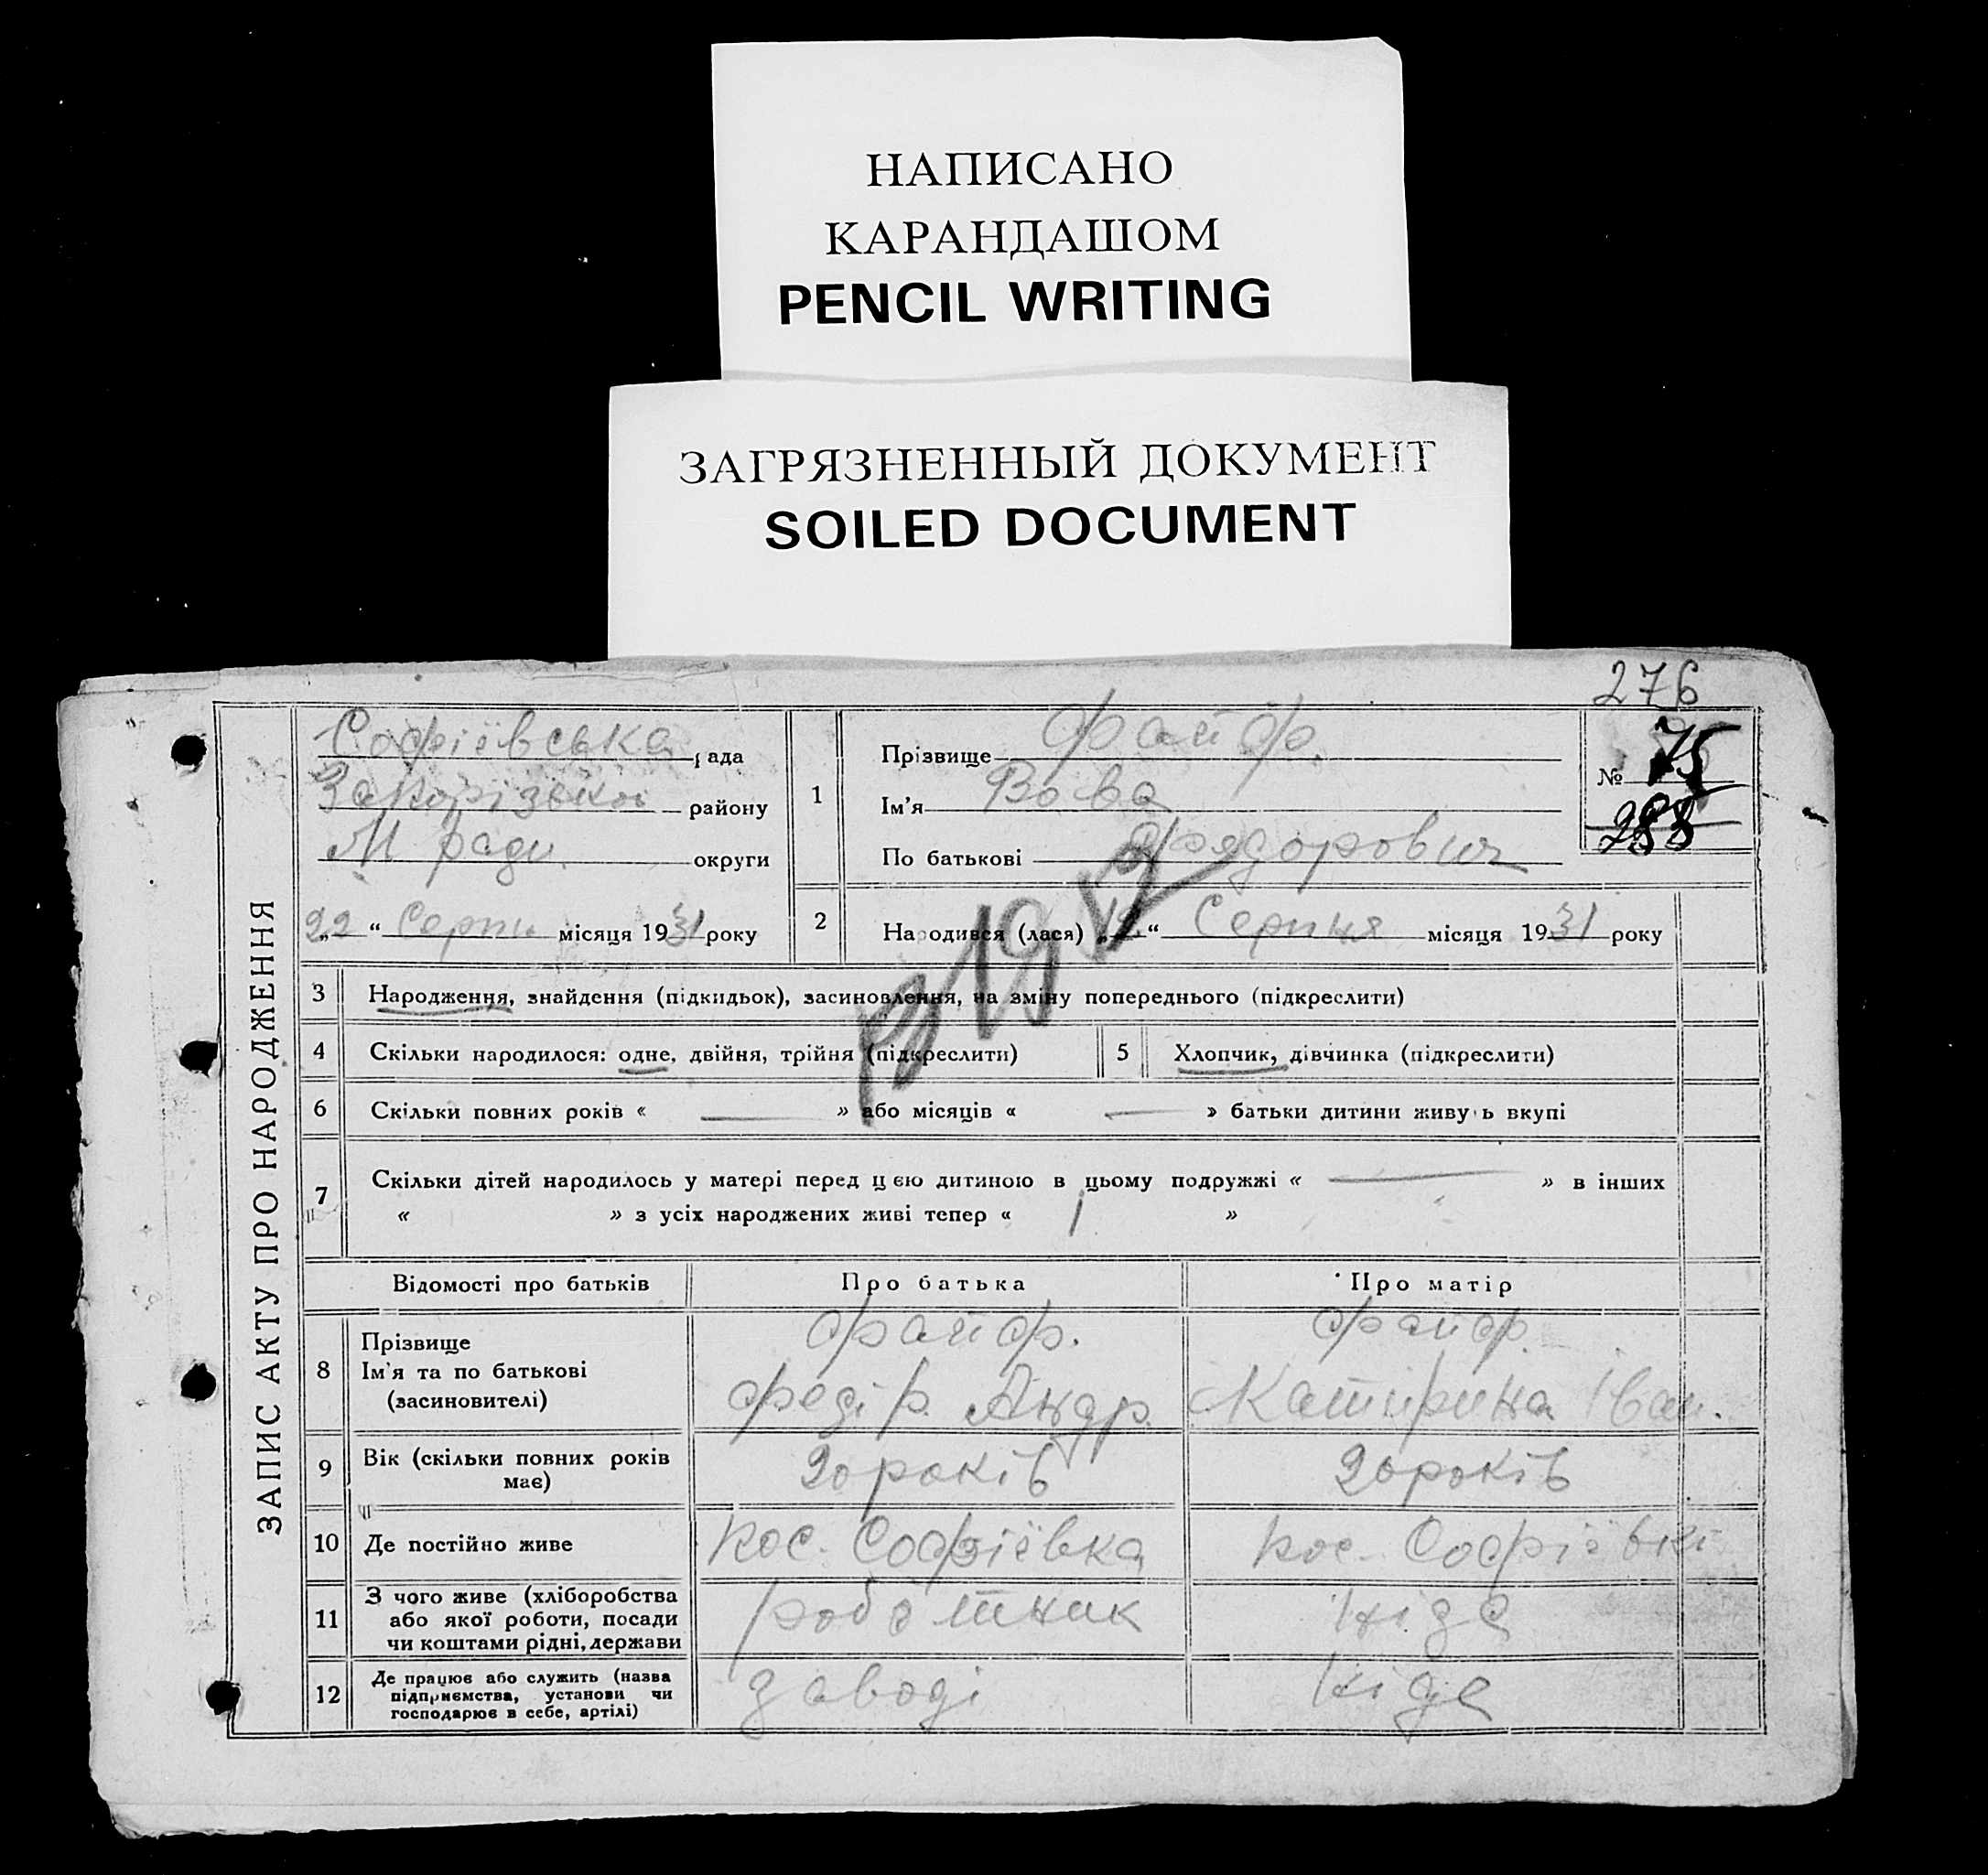 НАПИСАНО
КАРАНДАШОМ
PENCIL WRITING
ЗАГРЯЗНЕННЫЙ ДОКУМЕНТ
SOILED DOCUMENT
276
ЗАПИС АКТУ ПРО НАРОДЖЕННЯ
Софіївська рада
Запорізької району
М ради. округи
„22“ Серпн місяця 1931 року
1
Прізвище Файфр.
Ім'я Вова
По батькові Фядорович
№ 75
288
2 Народився (лася) „ “ Серпня місяця 1931 року
3 Народження, знайдення (підкидьок), засиновлення, на зміну попереднього (підкреслити)
4 Скільки народилося: одне, двійня, трійня (підкреслити)
5 Хлопчик, дівчинка (підкреслити)
6 Скільки повних років « — » або місяців « — » батьки дитини живуть вкупі
7 Скільки дітей народилось у матері перед цею дитиною в цьому подружжі « — » в інших
« » з усіх народжених живі тепер « 1 »
Відомості про батьків Про батька Про матір
8 Прізвище Файфр. Файфр.
Ім'я та по батькові Федір. Андр. Катирина Іван.
(засиновителі)
9 Вік (скільки повних років має) 20 років 20 років
10 Де постійно живе пос. Софіївка пос. Софіївкі
11 З чого живе (хліборобства
або якої роботи, посади
чи коштами рідні, держави
роботник ніде
12 Де працює або служить (назва
підприємства, установи чи
господарює в себе, артілі)
заводі ніде